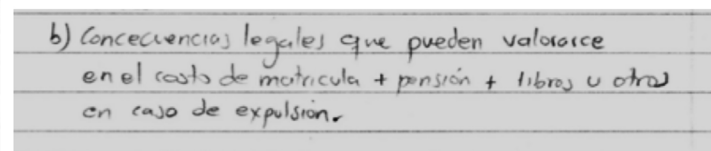 b) Concecuencias legales que pueden valorarce
en el costo de matricula + pensión + libros u otros
en caso de expulsión.